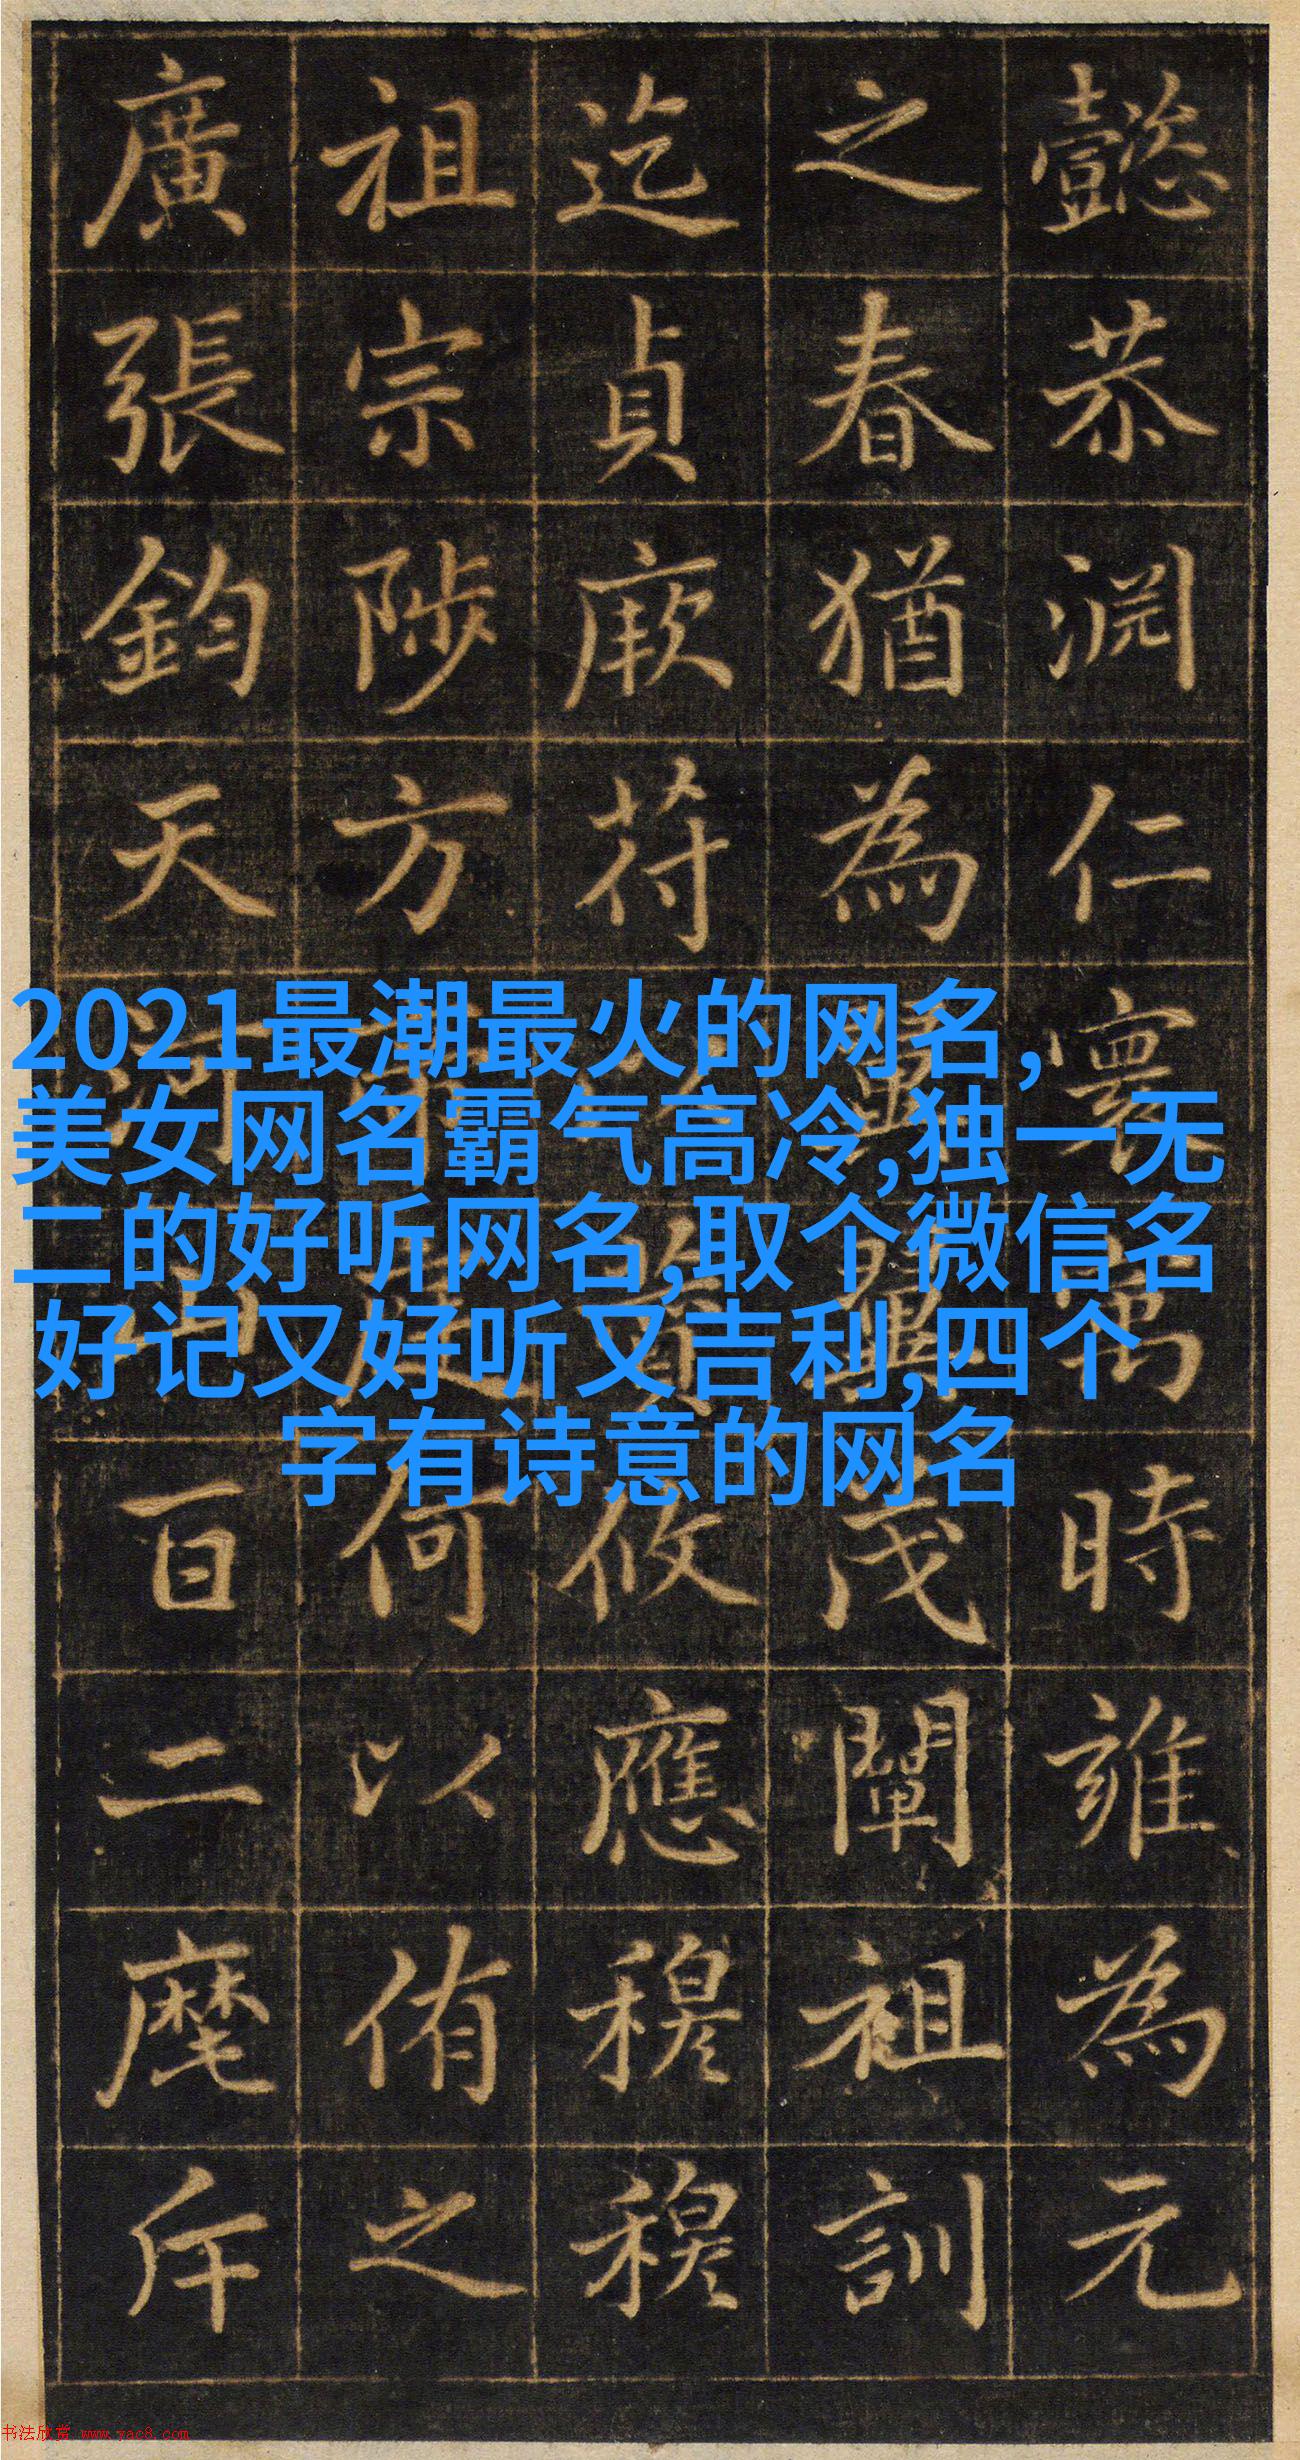 懿恭淵仁懷萬時雍為元
之春猶為茂闡祖訓
迄貞厥苻攸應穆穆
祖宗陟方何以侑之
廣張鈞天百二麾斥
2021最潮最火的网名,
美女网名霸气高冷,独一无
二的好听网名,取个微信名
好记又好听又吉利,四个
字有诗意的网名
书法欣赏 www.yac8.com